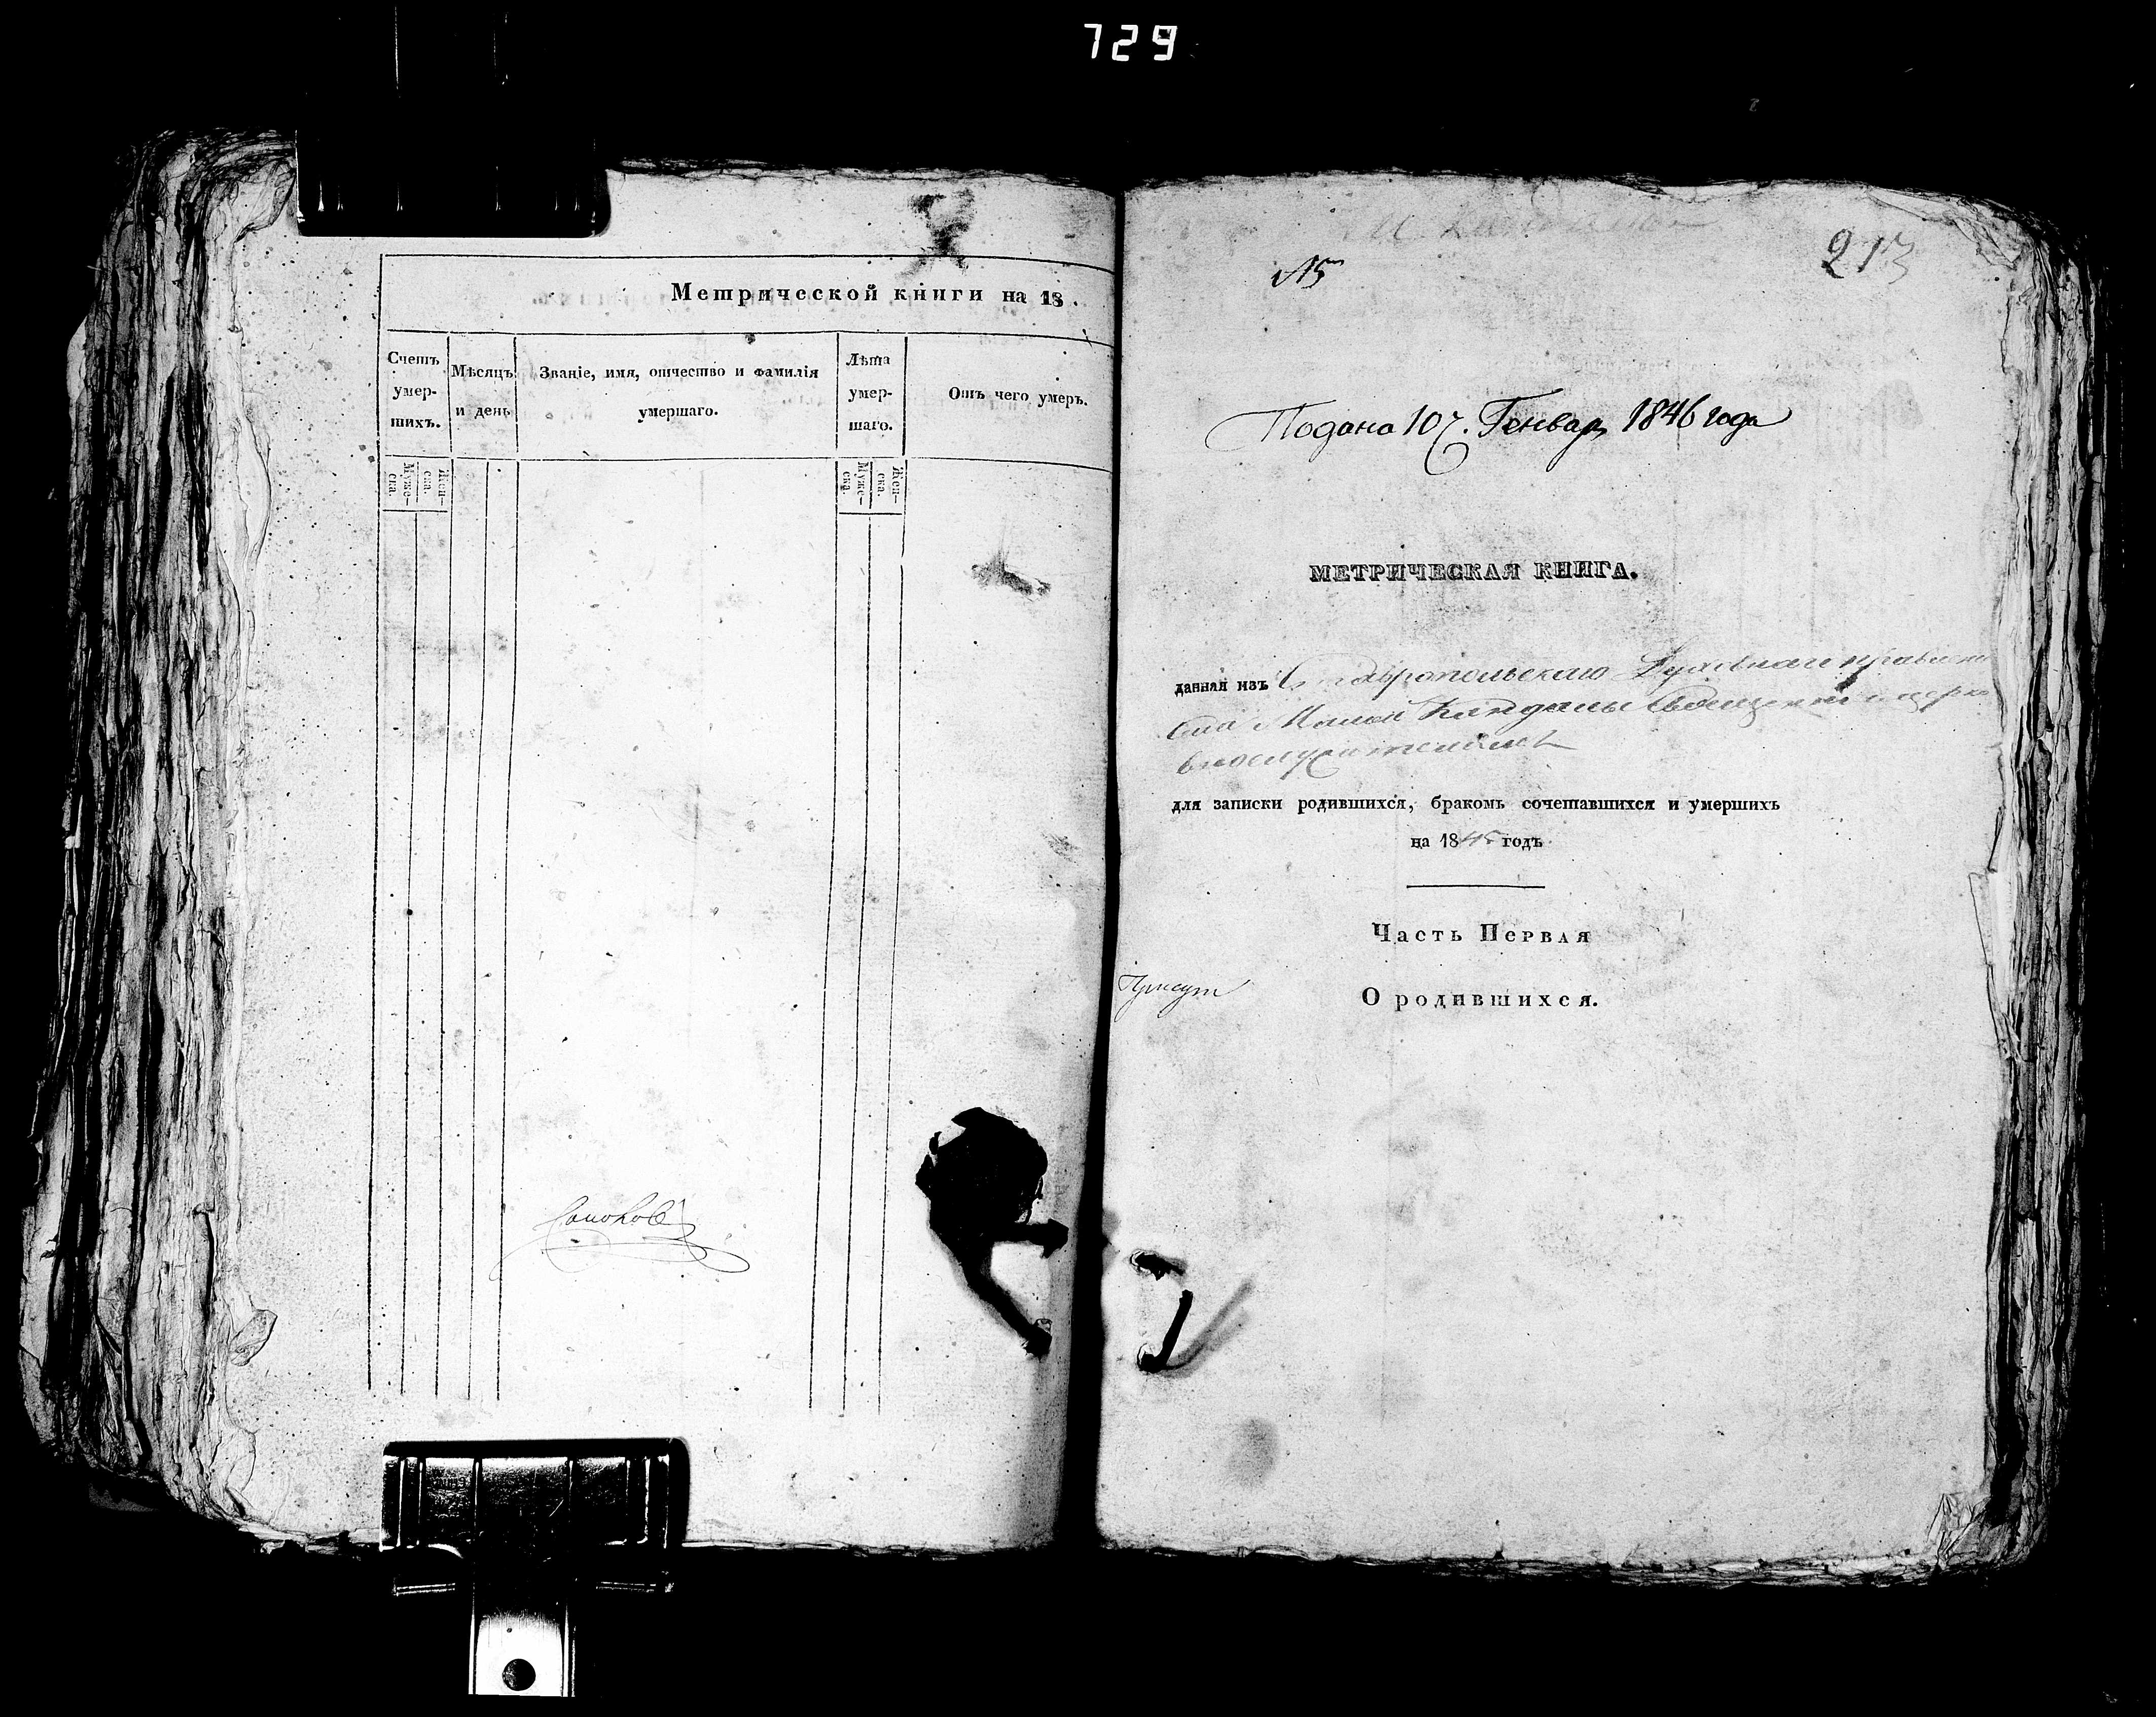 729
Метрической книги на 18 .
Счетъ умер-шихъ.
Мѣсяцъ и день
Званіе, имя, отчество и фамилія умершаго.
Лѣта умер-шаго.
Отъ чего умеръ.
Муже-ска.
Жен-ска.
Муже-ска.
Жен-ска.
213
Подана 10 Генвар 1846 года
МЕТРИЧЕСКАЯ КНИГА.
данная изъ Ставропольскаго Духовнаго правлен
села Малой Кандалы
для записки родившихся, бракомъ сочетавшихся и умершихъ
на 1845 годъ
Часть Первая
О родившихся.